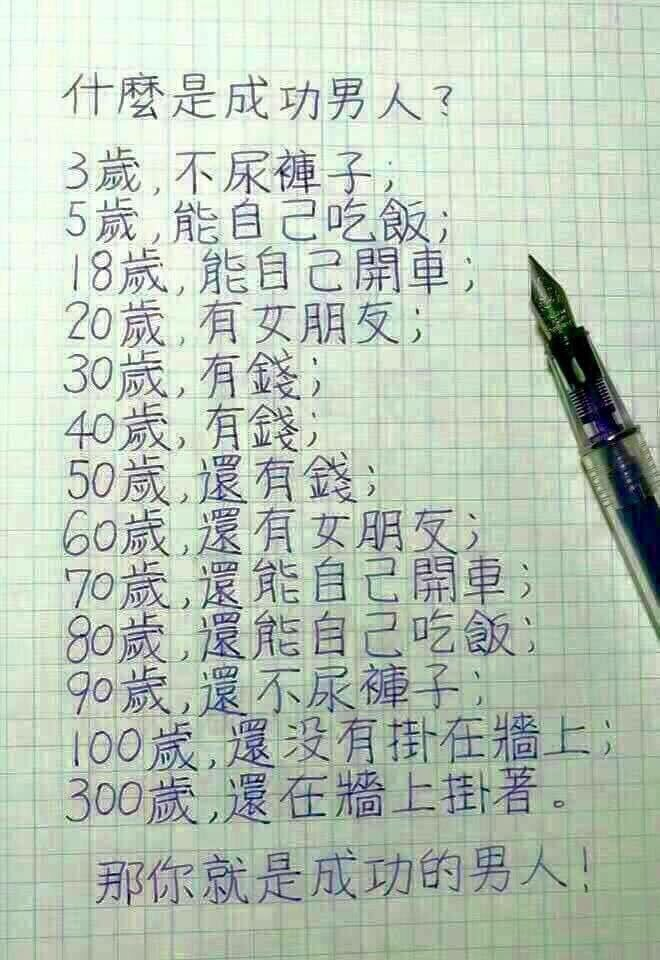 什麼是成功男人？
3歲,不尿褲子;
5歲,能自己吃飯;
18歲,能自己開車;
20歲,有女朋友;
30歲,有錢;
40歲,有錢;
50歲,還有錢;
60歲,還有女朋友;
70歲,還能自己開車;
80歲,還能自己吃飯;
90歲,還不尿褲子;
100歲,還没有掛在牆上;
300歲,還在牆上掛著。
那你就是成功的男人!